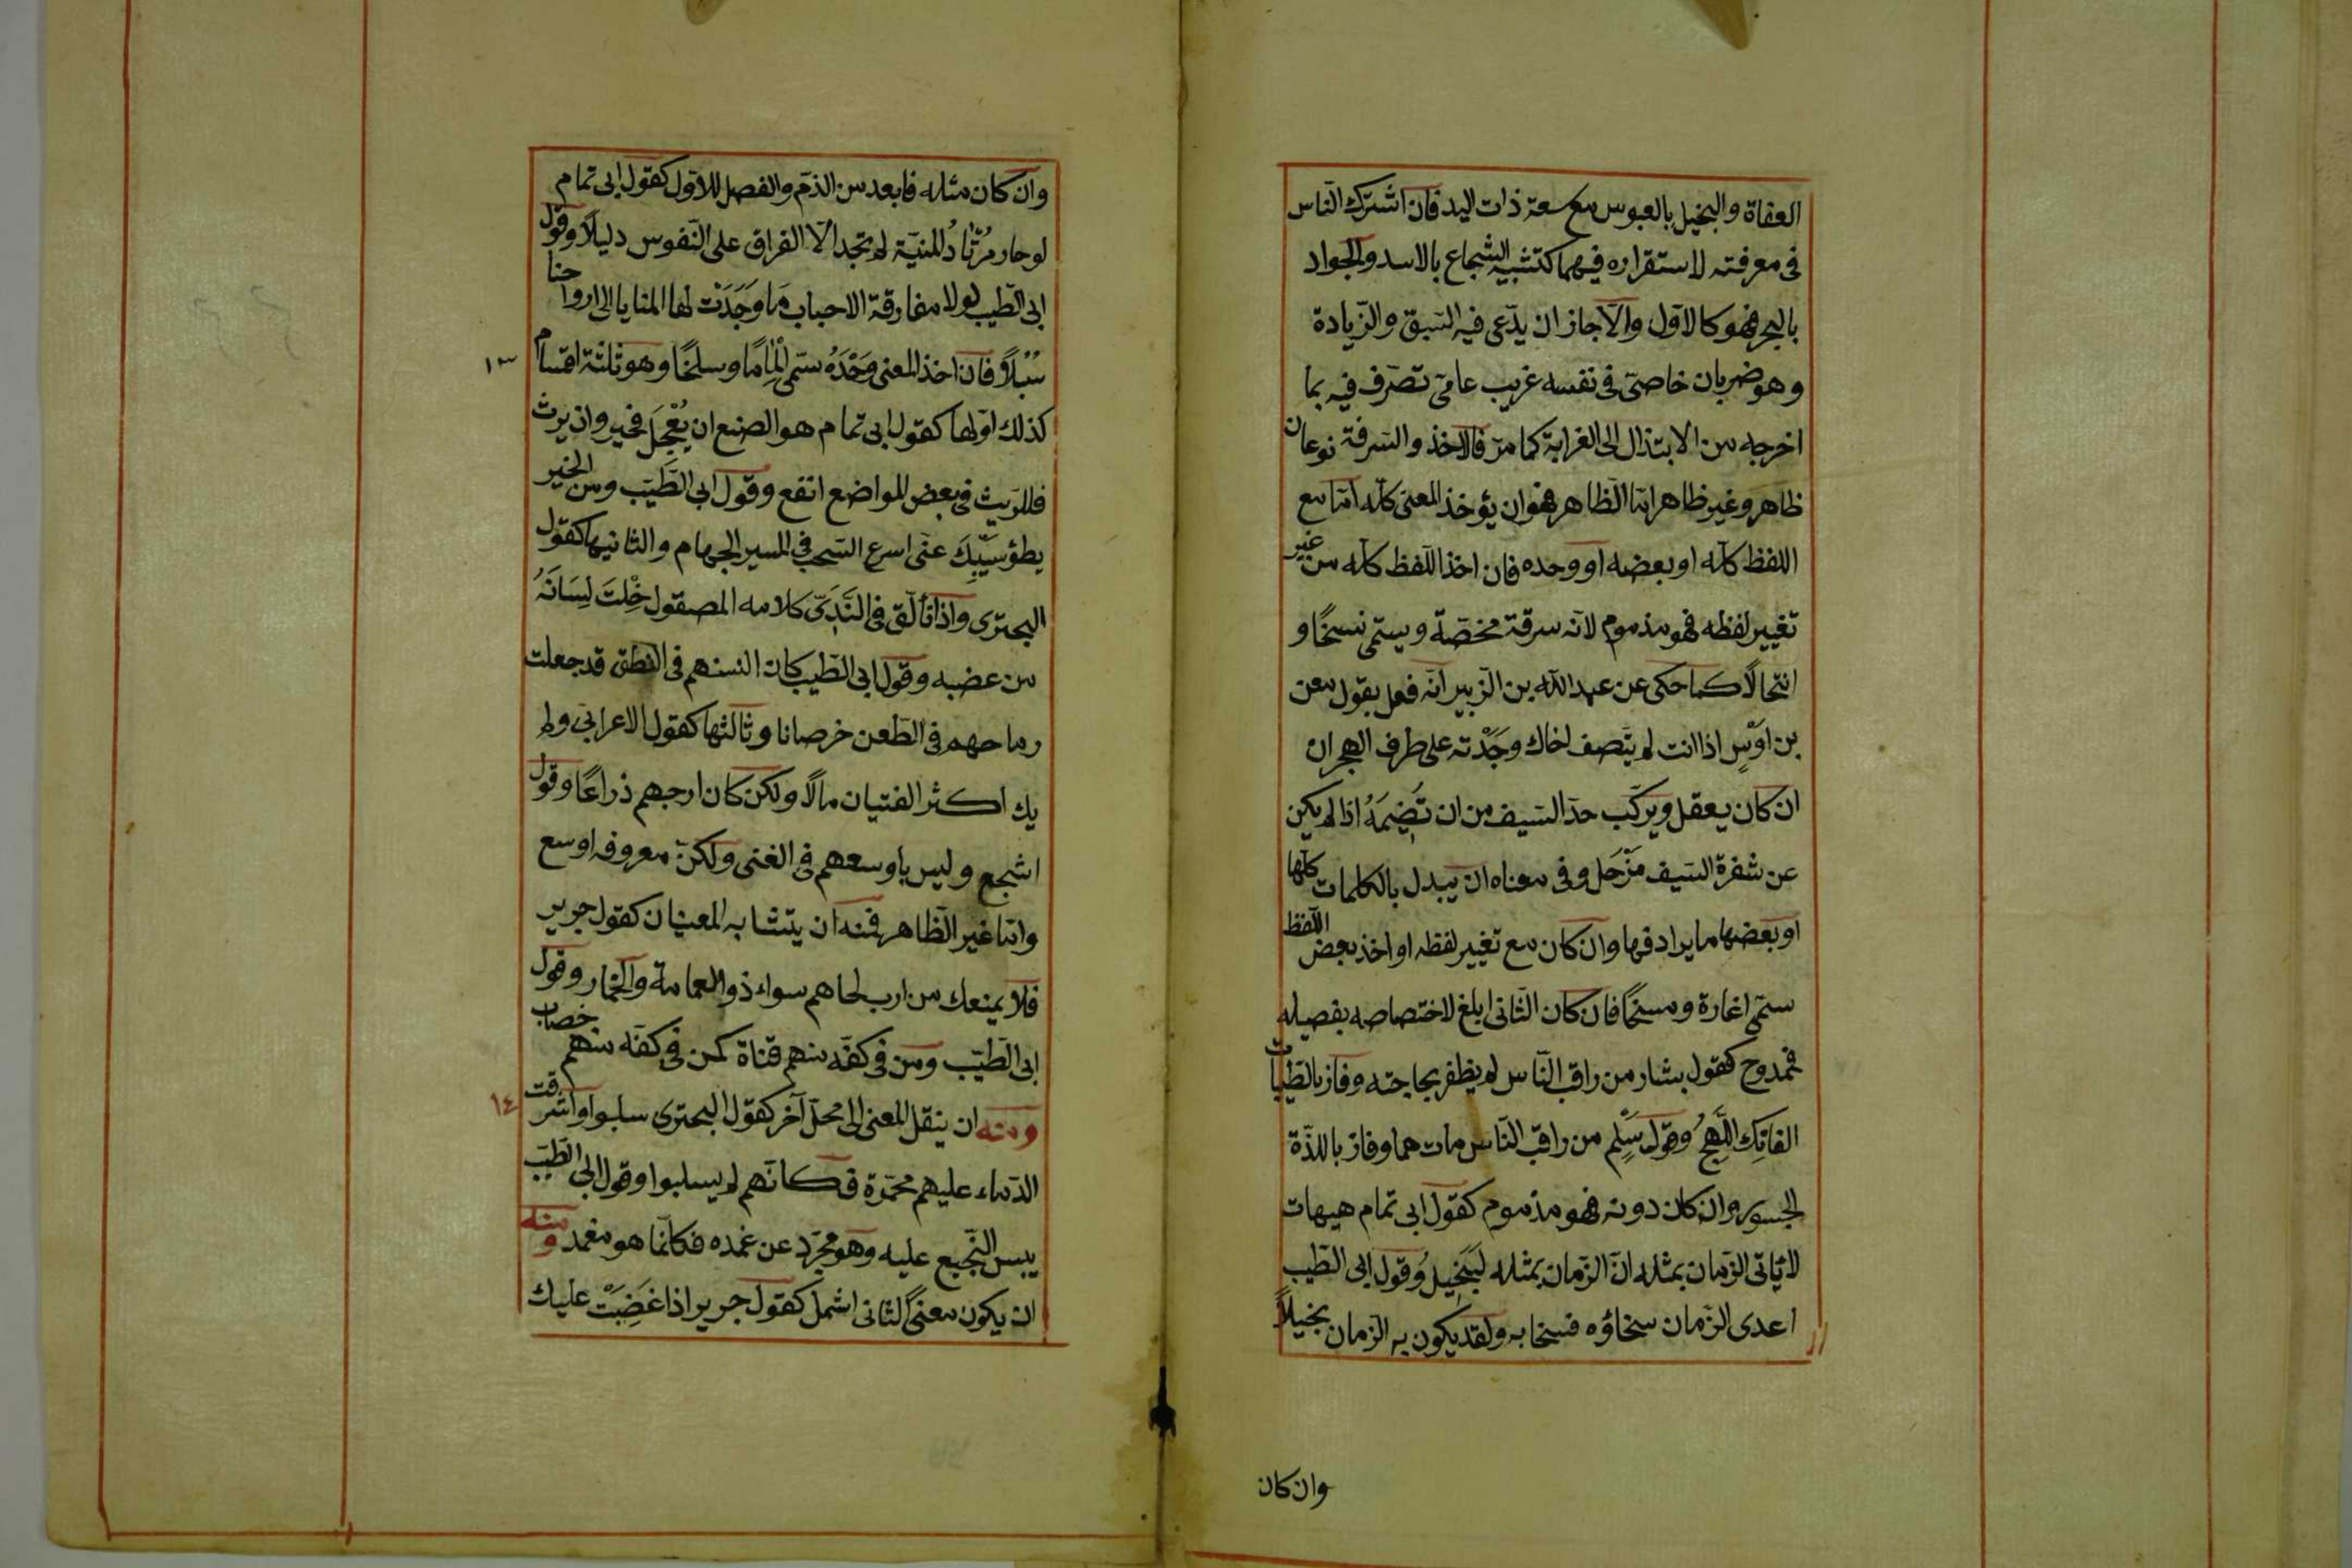 العفاة والبخيل بالعبوس مع سعة ذات اليد فان اشترك الناس
فى معرفته لاستقراره فيهما كتشبيه الشجاع بالاسد والجواد
بالبحر فهو كالاول والّا جاز ان يدّعى فيه السّبق والزّيادة
وهو ضربان خاصىّ فى نفسه غريب عامّى تصرّف فيه بما
اخرجه من الابتذال الى الغرابة كما مرّ فالاخذ والسّرقة نوعان
ظاهر وغير ظاهر امّا الظّاهر فهو ان يؤخذ المعنى كلّه امّا مع
اللفظ كلّه او بعضه او وحده فان اخذ اللّفظ كلّه من غير
تغيير لفظه فهو مذموم لانّه سرقة مخضّة ويسمّى نسخًا و
انتحالًا كما حكى عن عبد اللّه بن الزّبير انّه فعل بقول معن
بن اَوْسٍ اذا انت لم يتّصف اخاك وجَدْته على طرف الهجران
ان كان يعقل ويركّب حدّ السّيف من ان تَضِيمَهُ اذا لم يكن
عن شفرة السّيف مَزْحَل وفى معناه ان يبدل بالكلمات كلّها
او بعضها ما يرادفها وان كان مع تغيير لفظه او اخذ بعض اللّفظ
سمّى اغارة ومسخًا فان كان الثّانى ابلغ لاختصاصه بفصيله
فممدوح كقول بشار من راقب النّاس لم يظفر بحاجته وفاز بالطّيّبات
الفاتِك اللَّهِجُ وقول سَلِم من راقب النّاس مات هما وفاز باللذّة
الجسور وان كان دونه فهو مذموم كقول ابى تمام هيهات
لا يأتى الزّمان بمثله انّ الزّمان بمثله لَبَخِيلُ وقول ابى الطّيب
اعدى الزّمان سخاؤه فسخا به ولقد يكون به الزّمان بخيلاً
وان كان
وان كان مثله فابعد من الذّم والفصل للاوّل كقول ابى تمام
لو حار مُرْتَادُ المنيّة لم تجد الّا الفراق على النّفوس دليلًا وقول
ابى الطّيب لولا مفارقة الاحباب مَا وَجَدَتْ لها المنايا الى ارواحنا
سُبُلًا وفان اخذ المعنى وَحْدَهُ سمّى اِلْمَامًا وسلخًا وهو ثلثة اقسام
١٣
كذلك اوّلها كقول ابى تمام هو الصنع ان يُعْجَل فخير وان يرث
فللرّيث فى بعض المواضع انفع وقول ابى الطَّيّب ومن الخير
بطؤ سَيْبِكَ عنّى اسرع السّحب فى المسير الجهام والثانيها كقول
البحترى واذا تألّق فى النَّدِىّ كلامه المصقول خِلْتَ لِسَانَهُ
من عضبه وقول ابى الطّيب كان السنهم فى النطق قد جعلت
رماحهم فى الطّعن خرصانا وثالثها كقول الاعرابىّ ولم
يك اكثر الفتيان مالًا ولكن كان ارحبهم ذراعًا وقول
اشجع وليس باوسعهم فى الغنى ولكنّ معروفه اوسع
وامّا غير الظّاهر فمنه ان يتشابه المعنيان كقول جرير
فلا يمنعك من ارب لحاهم سواء ذو العمامة والخمار وقول
ابى الطّيّب ومن فى كفّه منهم قناة كمن فى كفّه منهم خضاب
ومنه ان ينقل المعنى الى محلّ آخر كقول البحترى سلبوا واشرقت
١٤
الدّماء عليهم محمّرة فكانّهم لم يسلبوا وقول ابى الطّيّب
يبس النّجيع عليه وهو مجرّد عن غمده فكانّما هو مغمد ومنه
ان يكون معنى الثانى اشمل كقول جرير اذا غَضِبَتْ عليك